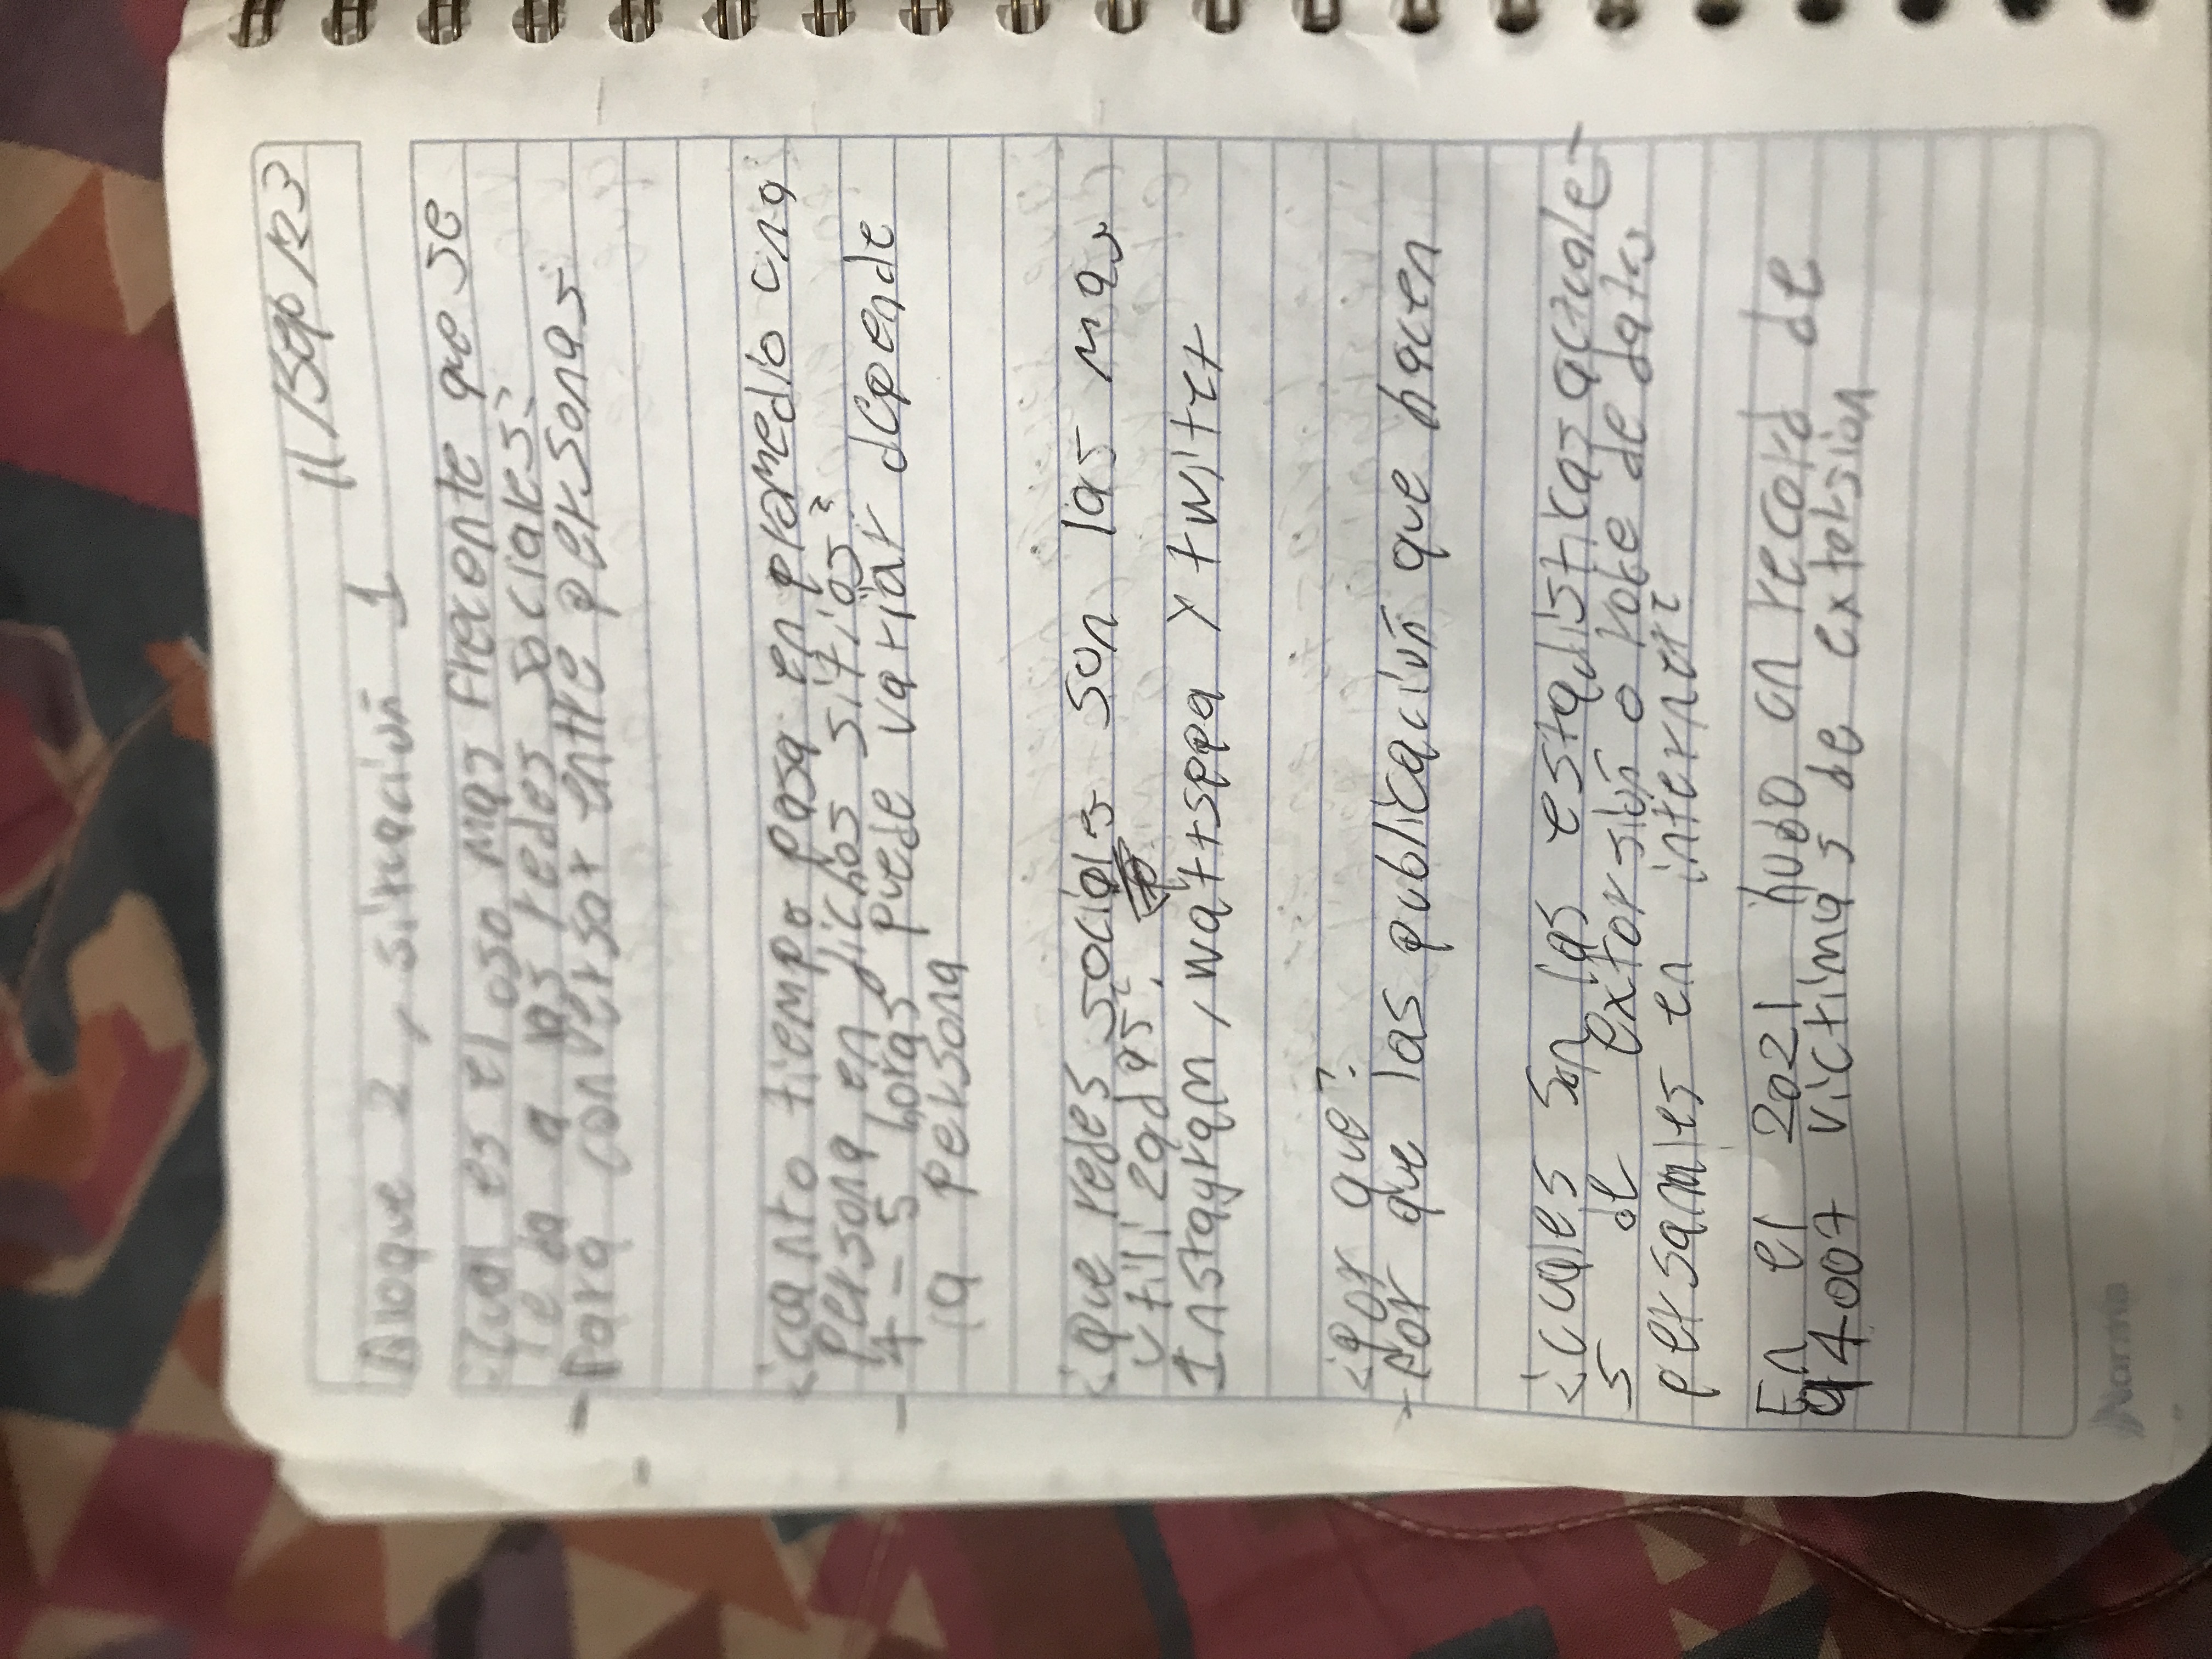 11/sep/23
Bloque 2, situación 1
¿Cual es el uso mas frecente que se
le da a las redes sociales?
- Para conversar entre personas
¿cuanto tiempo pasa en promedio una
persona en dichos sitios?
- 4-5 horas puede variar depende
la persona
¿que redes sociales son las mas
utilizadas?
Instagram, wattseppa y twitter
¿Por que?
- Por que las publicación que hacen
¿cuales son las estadisticas actuale-
s de extorsión o robe de datos
persamles en internett
En el 2021 hubo un record de
94007 victimas de extorsion
Norma